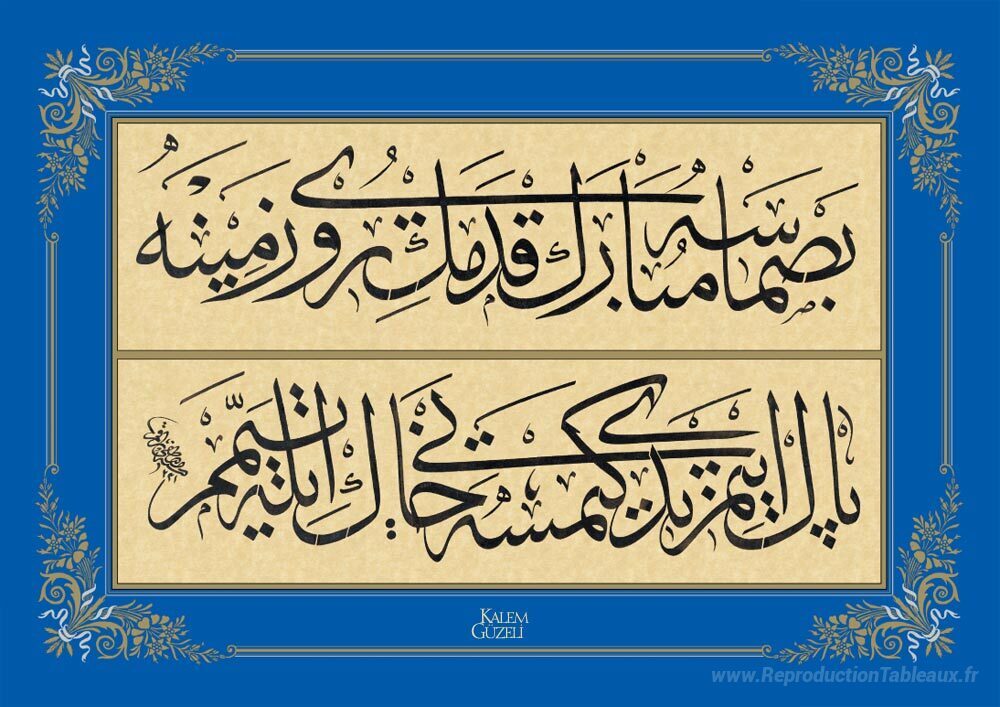 بصماسه مبارك قدمك روى زمينه
پاك ايتمزيدى كيمسه يى خاك ايله تيمم
KALEM GÜZELİ
www.ReproductionTableaux.fr